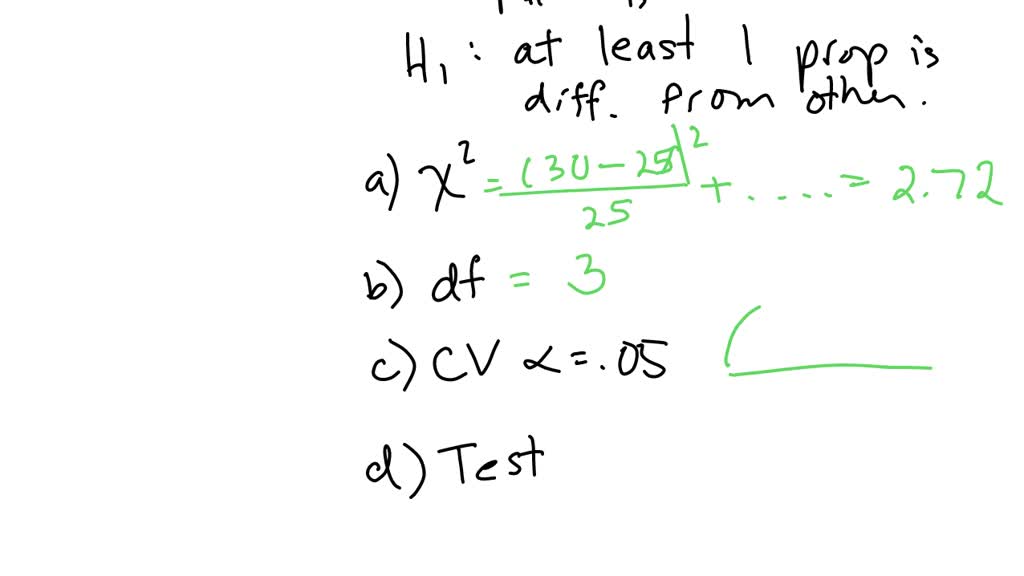 H₁ : at least 1 prop is
diff. from other.
a) χ² = (30 - 25)² / 25 + ..... = 2.72
b) df = 3
c) CV α = .05
d) Test